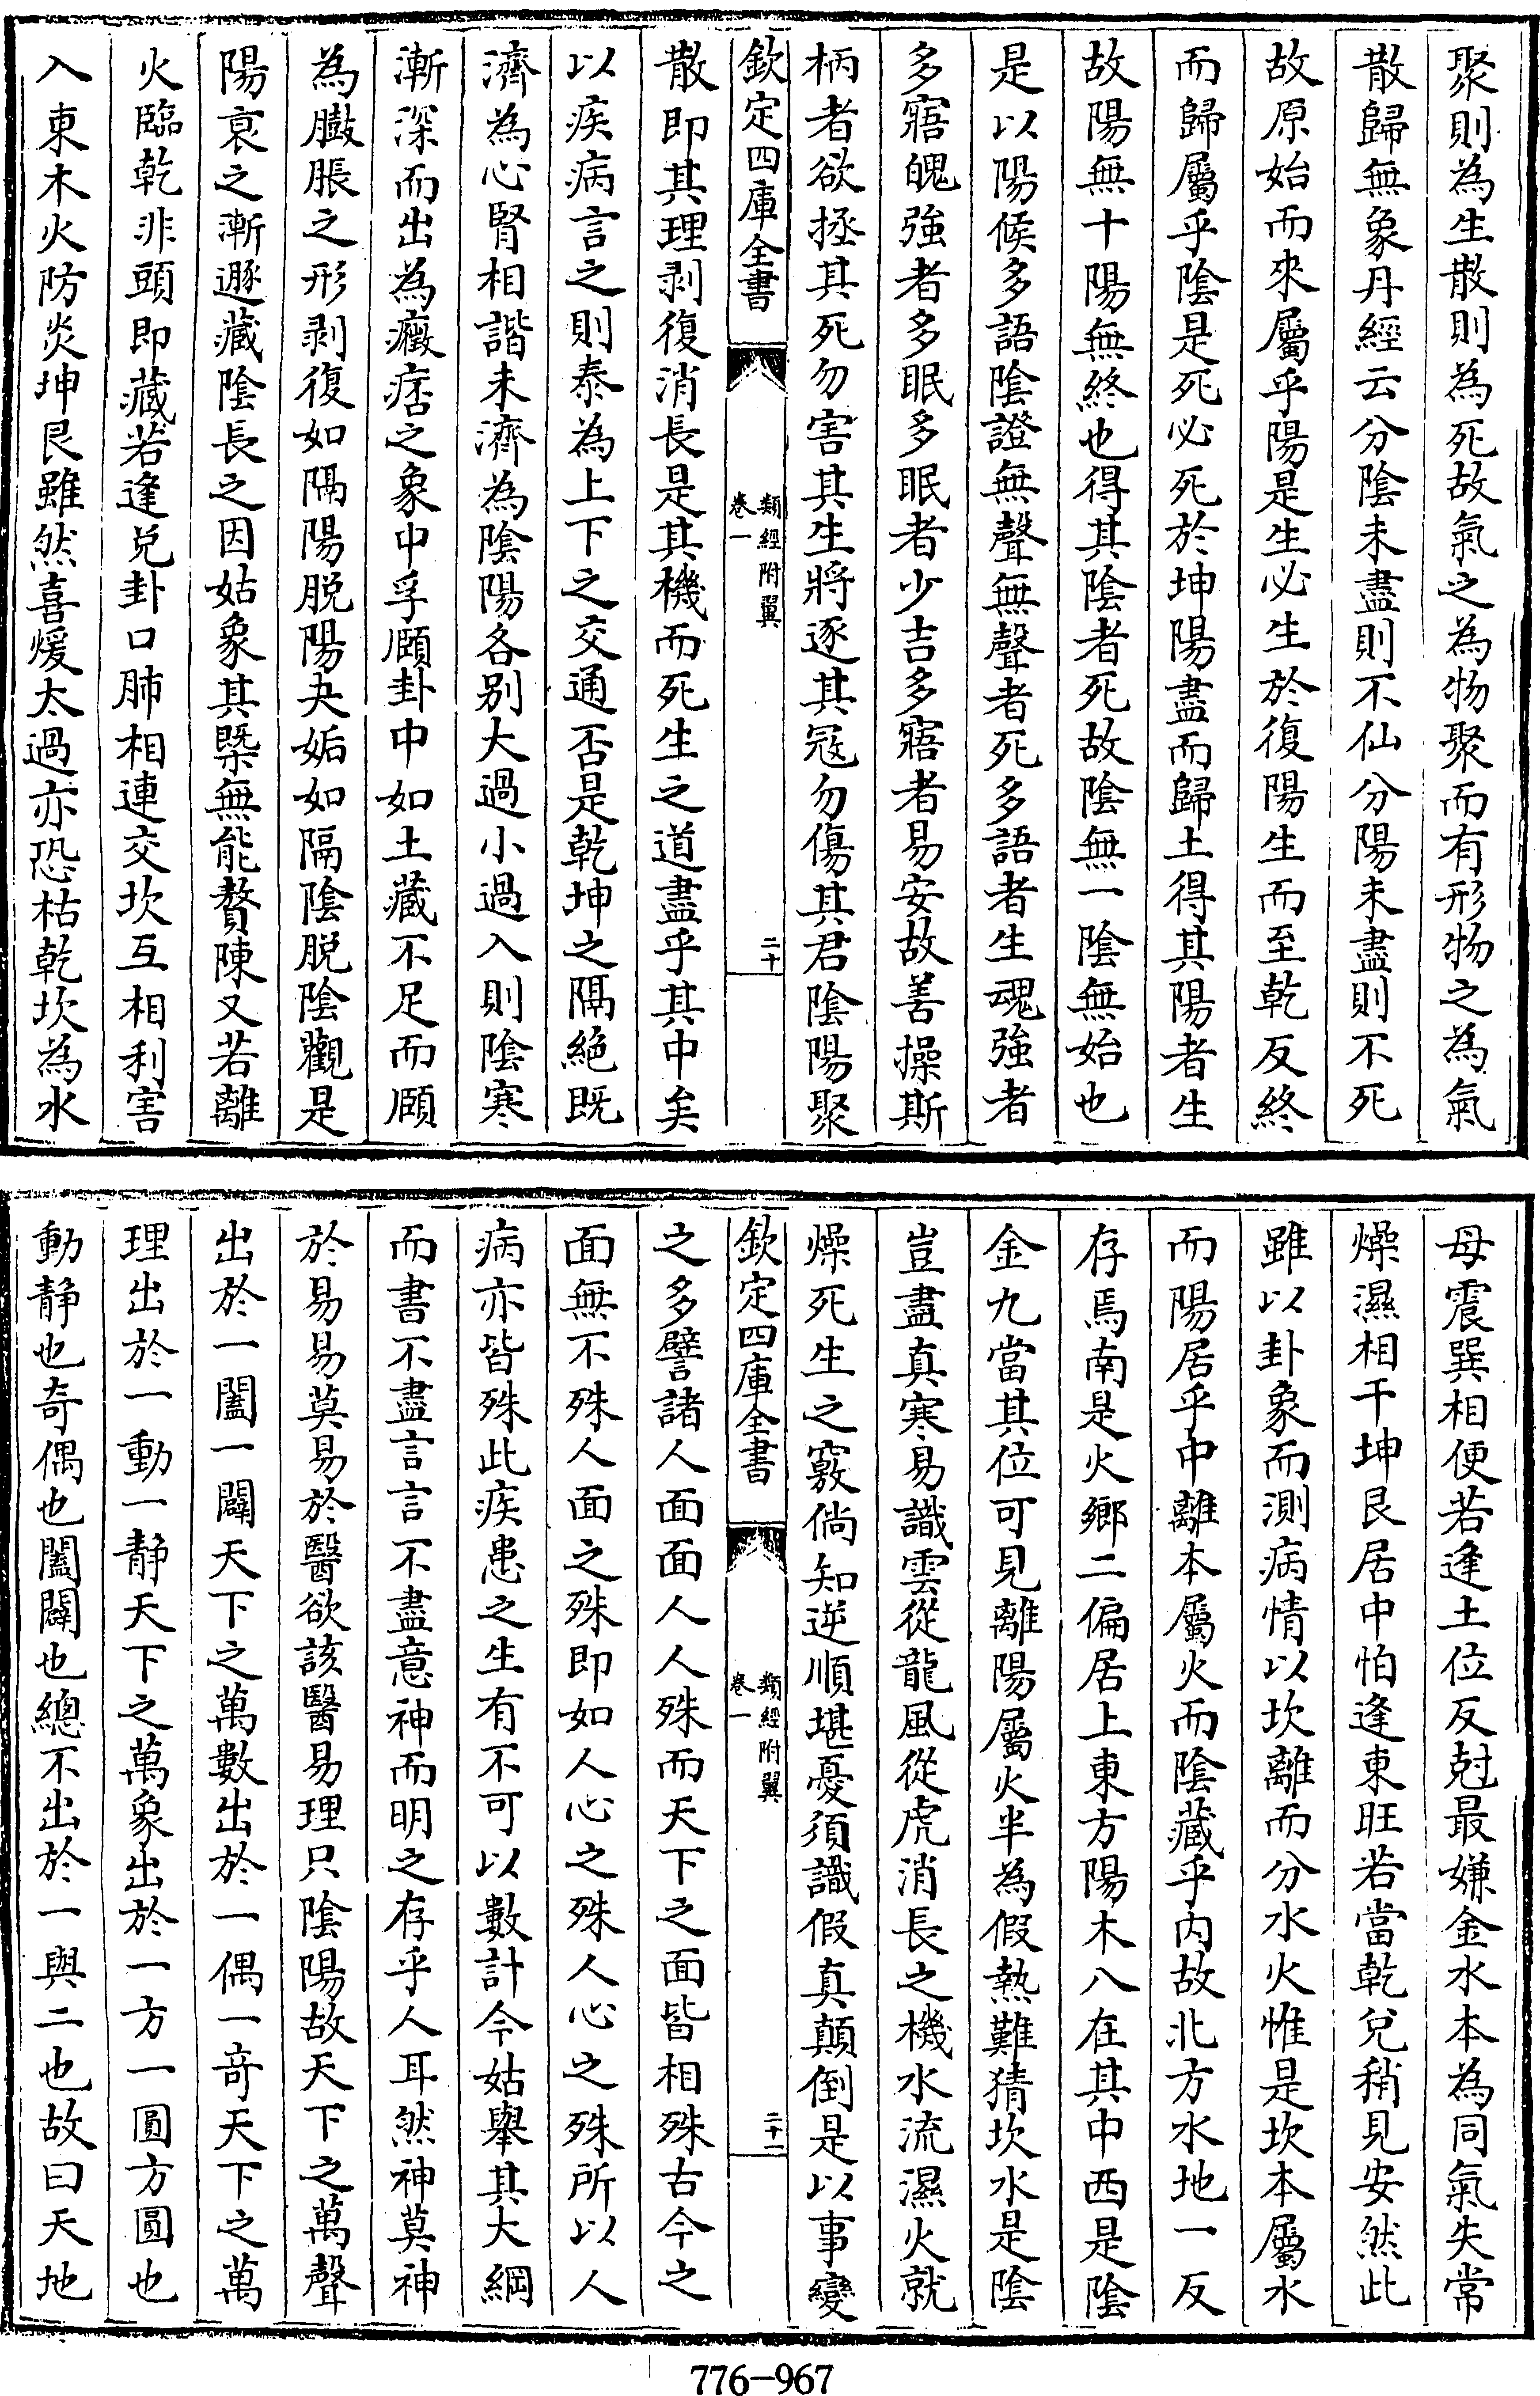 聚則為生散則為死故氣之為物聚而有形物之為氣
散歸無象丹經云分陰未盡則不仙分陽未盡則不死
故原始而來屬乎陽是生必生於復陽生而至乾反終
而歸屬乎陰是死必死於坤陽盡而歸土得其陽者生
故陽無十陽無終也得其陰者死故陰無一陰無始也
是以陽候多語陰證無聲無聲者死多語者生魂強者
多寤魄強者多眠多眠者少吉多寤者易安故善操斯
柄者欲拯其死勿害其生將逐其冦勿傷其君陰陽聚
欽定四庫全書
類經附翼
卷一
二十
散即其理剥復消長是其機而死生之道盡乎其中矣
以疾病言之則泰為上下之交通否是乾坤之隔絶既
濟為心腎相諧未濟為陰陽各别大過小過入則陰寒
漸深而出為癥痞之象中孚頤卦中如土藏不足而頤
為臌脹之形剥復如隔陽脱陽夬姤如隔陰脱陰觀是
陽衰之漸遯藏陰長之因姑象其槩無能贅陳又若離
火臨乾非頭即藏若逢兑卦口肺相連交坎互相利害
入東木火防炎坤艮雖然喜煖太過亦恐枯乾坎為水
母震巽相便若逢土位反尅最嫌金水本為同氣失常
燥濕相干坤艮居中怕逢東旺若當乾兑稍見安然此
雖以卦象而測病情以坎離而分水火惟是坎本屬水
而陽居乎中離本屬火而陰藏乎内故北方水地一反
存焉南是火鄉二偏居上東方陽木八在其中西是陰
金九當其位可見離陽屬火半為假熱難猜坎水是陰
豈盡真寒易識雲從龍風從虎消長之機水流濕火就
燥死生之竅倘知逆順堪憂須識假真顛倒是以事變
欽定四庫全書
類經附翼
卷一
二十一
之多譬諸人面面人人殊而天下之面皆相殊古今之
面無不殊人面之殊即如人心之殊人心之殊所以人
病亦皆殊此疾患之生有不可以數計今姑舉其大綱
而書不盡言言不盡意神而明之存乎人耳然神莫神
於易易莫易於醫欲該醫易理只陰陽故天下之萬聲
出於一闔一闢天下之萬數出於一偶一竒天下之萬
理出於一動一静天下之萬象出於一方一圓方圓也
動静也奇偶也闔闢也總不出於一與二也故曰天地
776-967